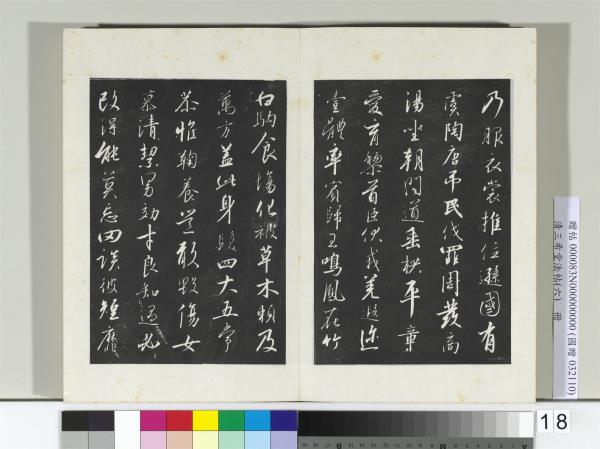 乃服衣裳推位遜國有
虞陶唐弔民伐罪周發商
湯坐朝問道垂拱平章
愛育黎首臣伏戎羌遐邇
壹體率賓歸王鳴鳳在竹
白駒食場化被草木賴及
萬方蓋此身髮四大五常
恭惟鞠養豈敢毀傷女
慕清潔男効才良知過必
改得能莫忘罔談彼短靡
贈帖 000083N000000000 (國贈 032110)
清三希堂法帖(六) 冊
18